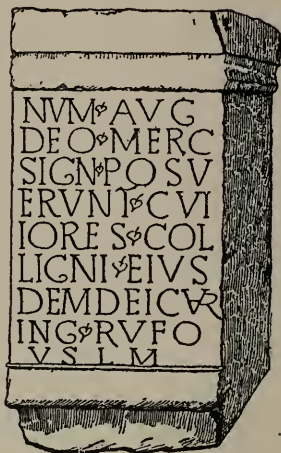 NVM AVG
DEO MERC
SIGN POSV
ERVNT CVI
IORES COL
LIGNI EIVS
DEM DEI CVR
ING RVFO
VSLM